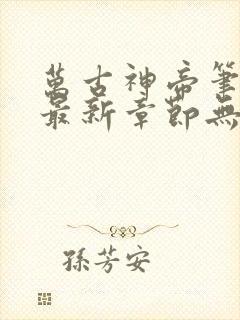 萬古神帝筆
最新章節無
孫芳安